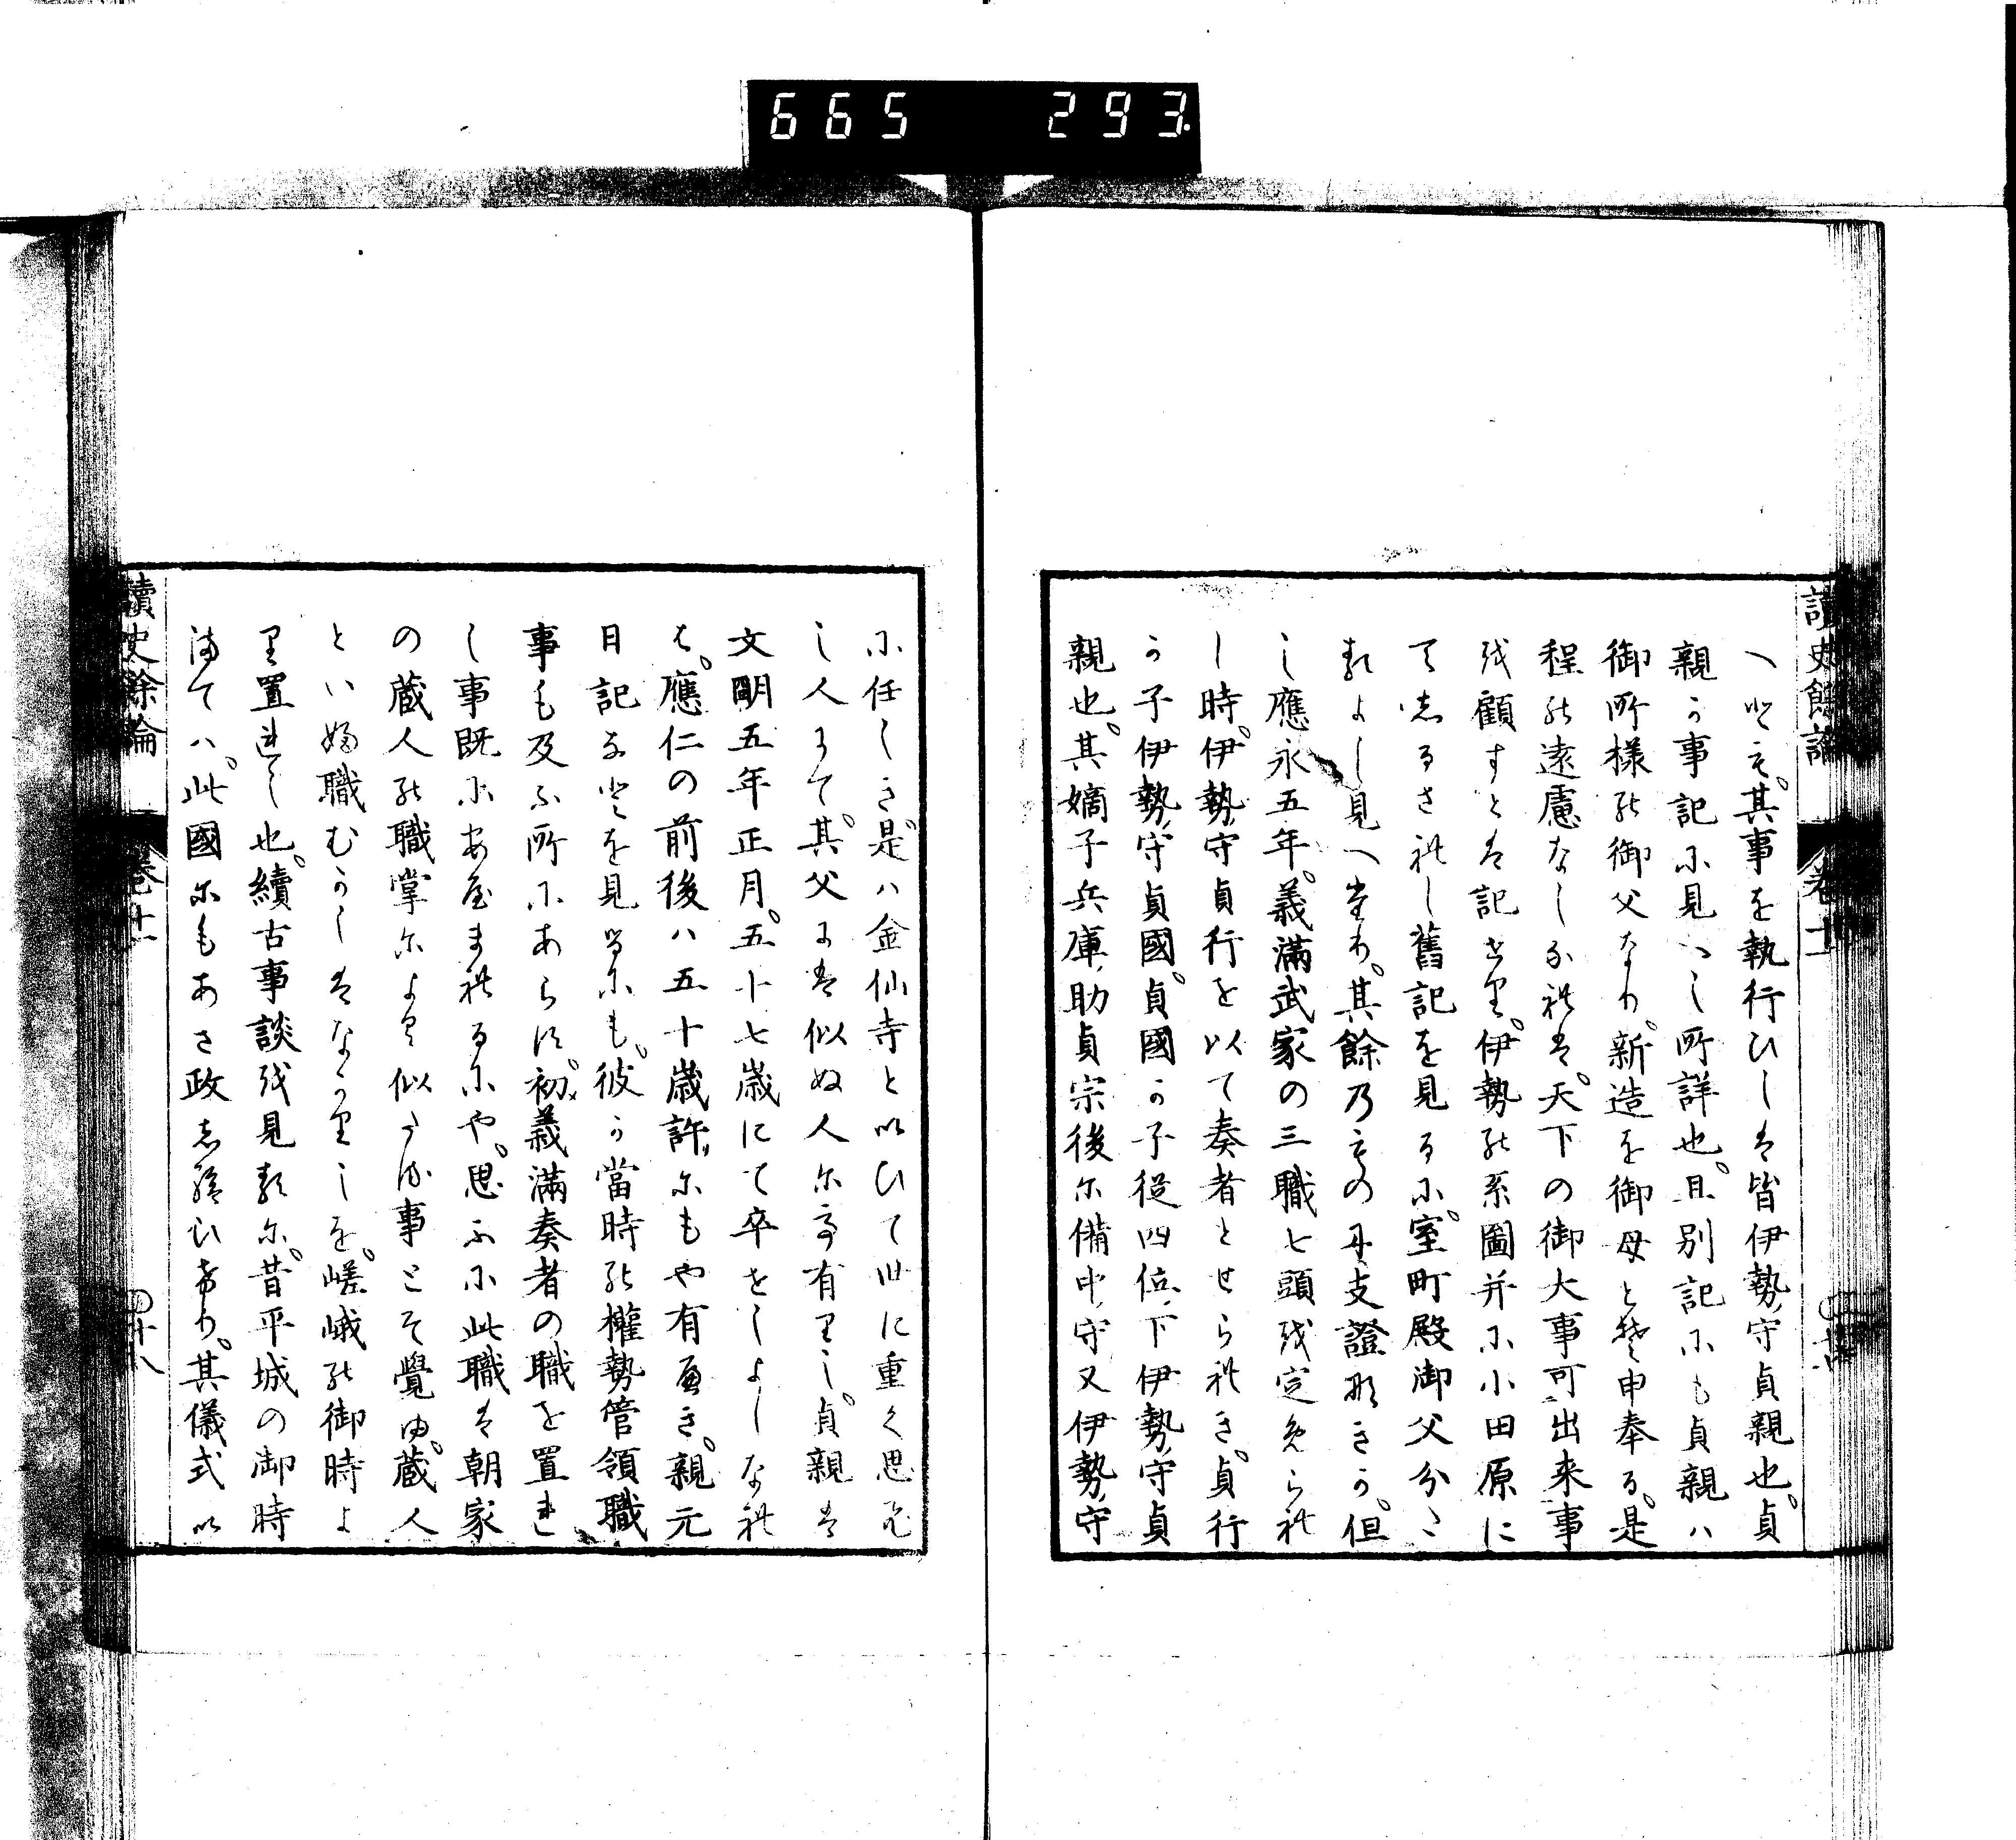 665 293.
讀史餘論 卷十一
へ共を。其事を執行ひしは皆伊勢守貞親也。貞
親か事記に見へし所詳也。且別記にも貞親ハ
御所様の御父なり。新造を御母とそ申奉る。是
程の遠慮なしなれは。天下の御大事可出来事
を顧すとは記せり。伊勢の系圖并に小田原に
てしるされし舊記を見るに。室町殿御父分と
なるよし見へたり。其餘乃ものは支證なきか。但
し應永五年。義滿武家の三職七頭を定められ
し時。伊勢守貞行を以て奏者とせられき。貞行
か子伊勢守貞國。貞國か子從四位下伊勢守貞
親也。其嫡子兵庫助貞宗後に備中守又伊勢守
に任しき。是ハ金仙寺といひて世に重く思は
し人にて。其父には似ぬ人に有りし。貞親は
文明五年正月。五十七歳にて卒せしよしなれ
は。應仁の前後ハ五十歳許にもや有へき。親元
日記なとを見るにも。彼か當時の權勢管領職
事も及ふ所にあらす。初義滿奏者の職を置れ
し事既にあやまれるにや。思ふに此職は朝家
の蔵人の職掌により似たる事とそ覺ゆ。蔵人
といふ職むかしはなかりしを。嵯峨の御時よ
り置れし也。續古事談を見るに。昔平城の御時
まてハ。此國にもあさ政し給ひけり。其儀式い
讀史餘論 卷十一 四十八